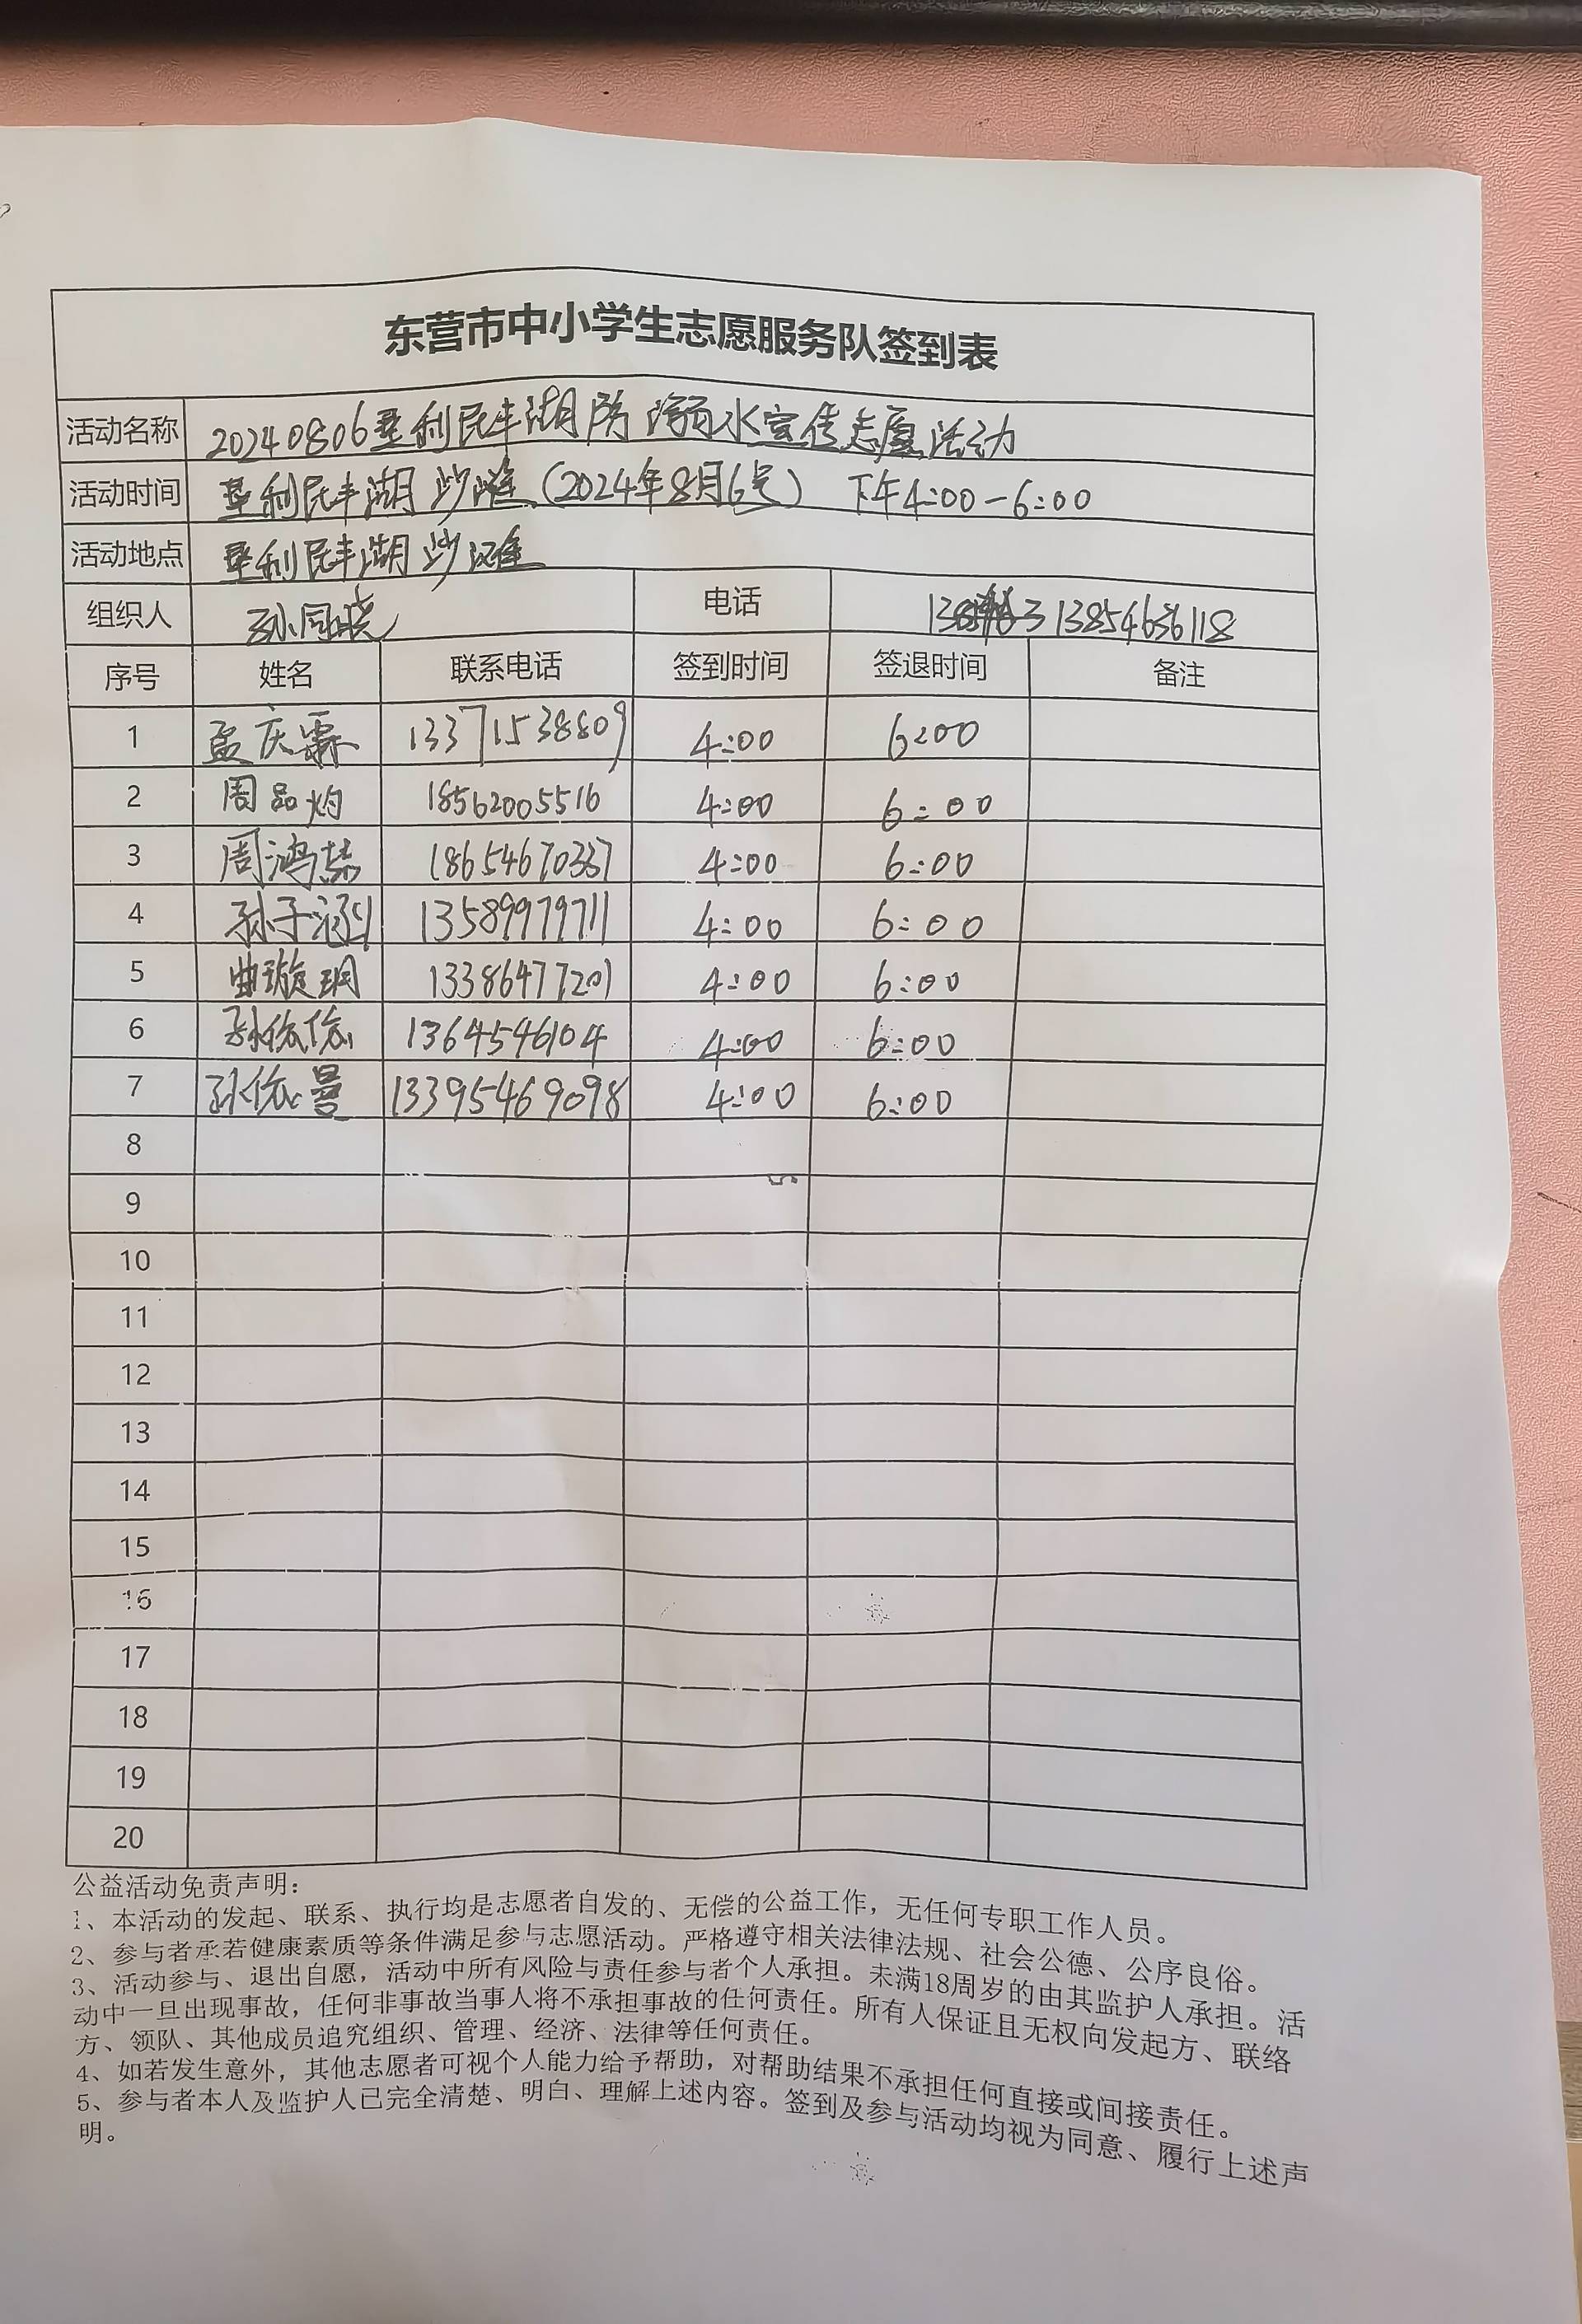 东营市中小学生志愿服务队签到表
活动名称 20240806垦利民丰湖防溺水宣传志愿活动
活动时间 垦利民丰湖沙滩(2024年8月6号) 下午4:00-6:00
活动地点 垦利民丰湖沙滩
组织人 孙同晓 电话 13854636118
序号 姓名 联系电话 签到时间 签退时间 备注
1 孟庆霖 13371538809 4:00 6:00
2 周品灼 18562005516 4:00 6:00
3 周鸿 18654670337 4:00 6:00
4 孙子涵 13589979711 4:00 6:00
5 曲璇玥 13386477201 4:00 6:00
6 孙依依 1364546104 4:00 6:00
7 孙依曼 13395469098 4:00 6:00
8
9
10
11
12
13
14
15
16
17
18
19
20
公益活动免责声明：
1、本活动的发起、联系、执行均是志愿者自发的、无偿的公益工作，无任何专职工作人员。
2、参与者承若健康素质等条件满足参与志愿活动。严格遵守相关法律法规、社会公德、公序良俗。
3、活动参与、退出自愿，活动中所有风险与责任参与者个人承担。未满18周岁的由其监护人承担。活
动中一旦出现事故，任何非事故当事人将不承担事故的任何责任。所有人保证且无权向发起方、联络
方、领队、其他成员追究组织、管理、经济、法律等任何责任。
4、如若发生意外，其他志愿者可视个人能力给予帮助，对帮助结果不承担任何直接或间接责任。
5、参与者本人及监护人已完全清楚、明白、理解上述内容。签到及参与活动均视为同意、履行上述声
明。